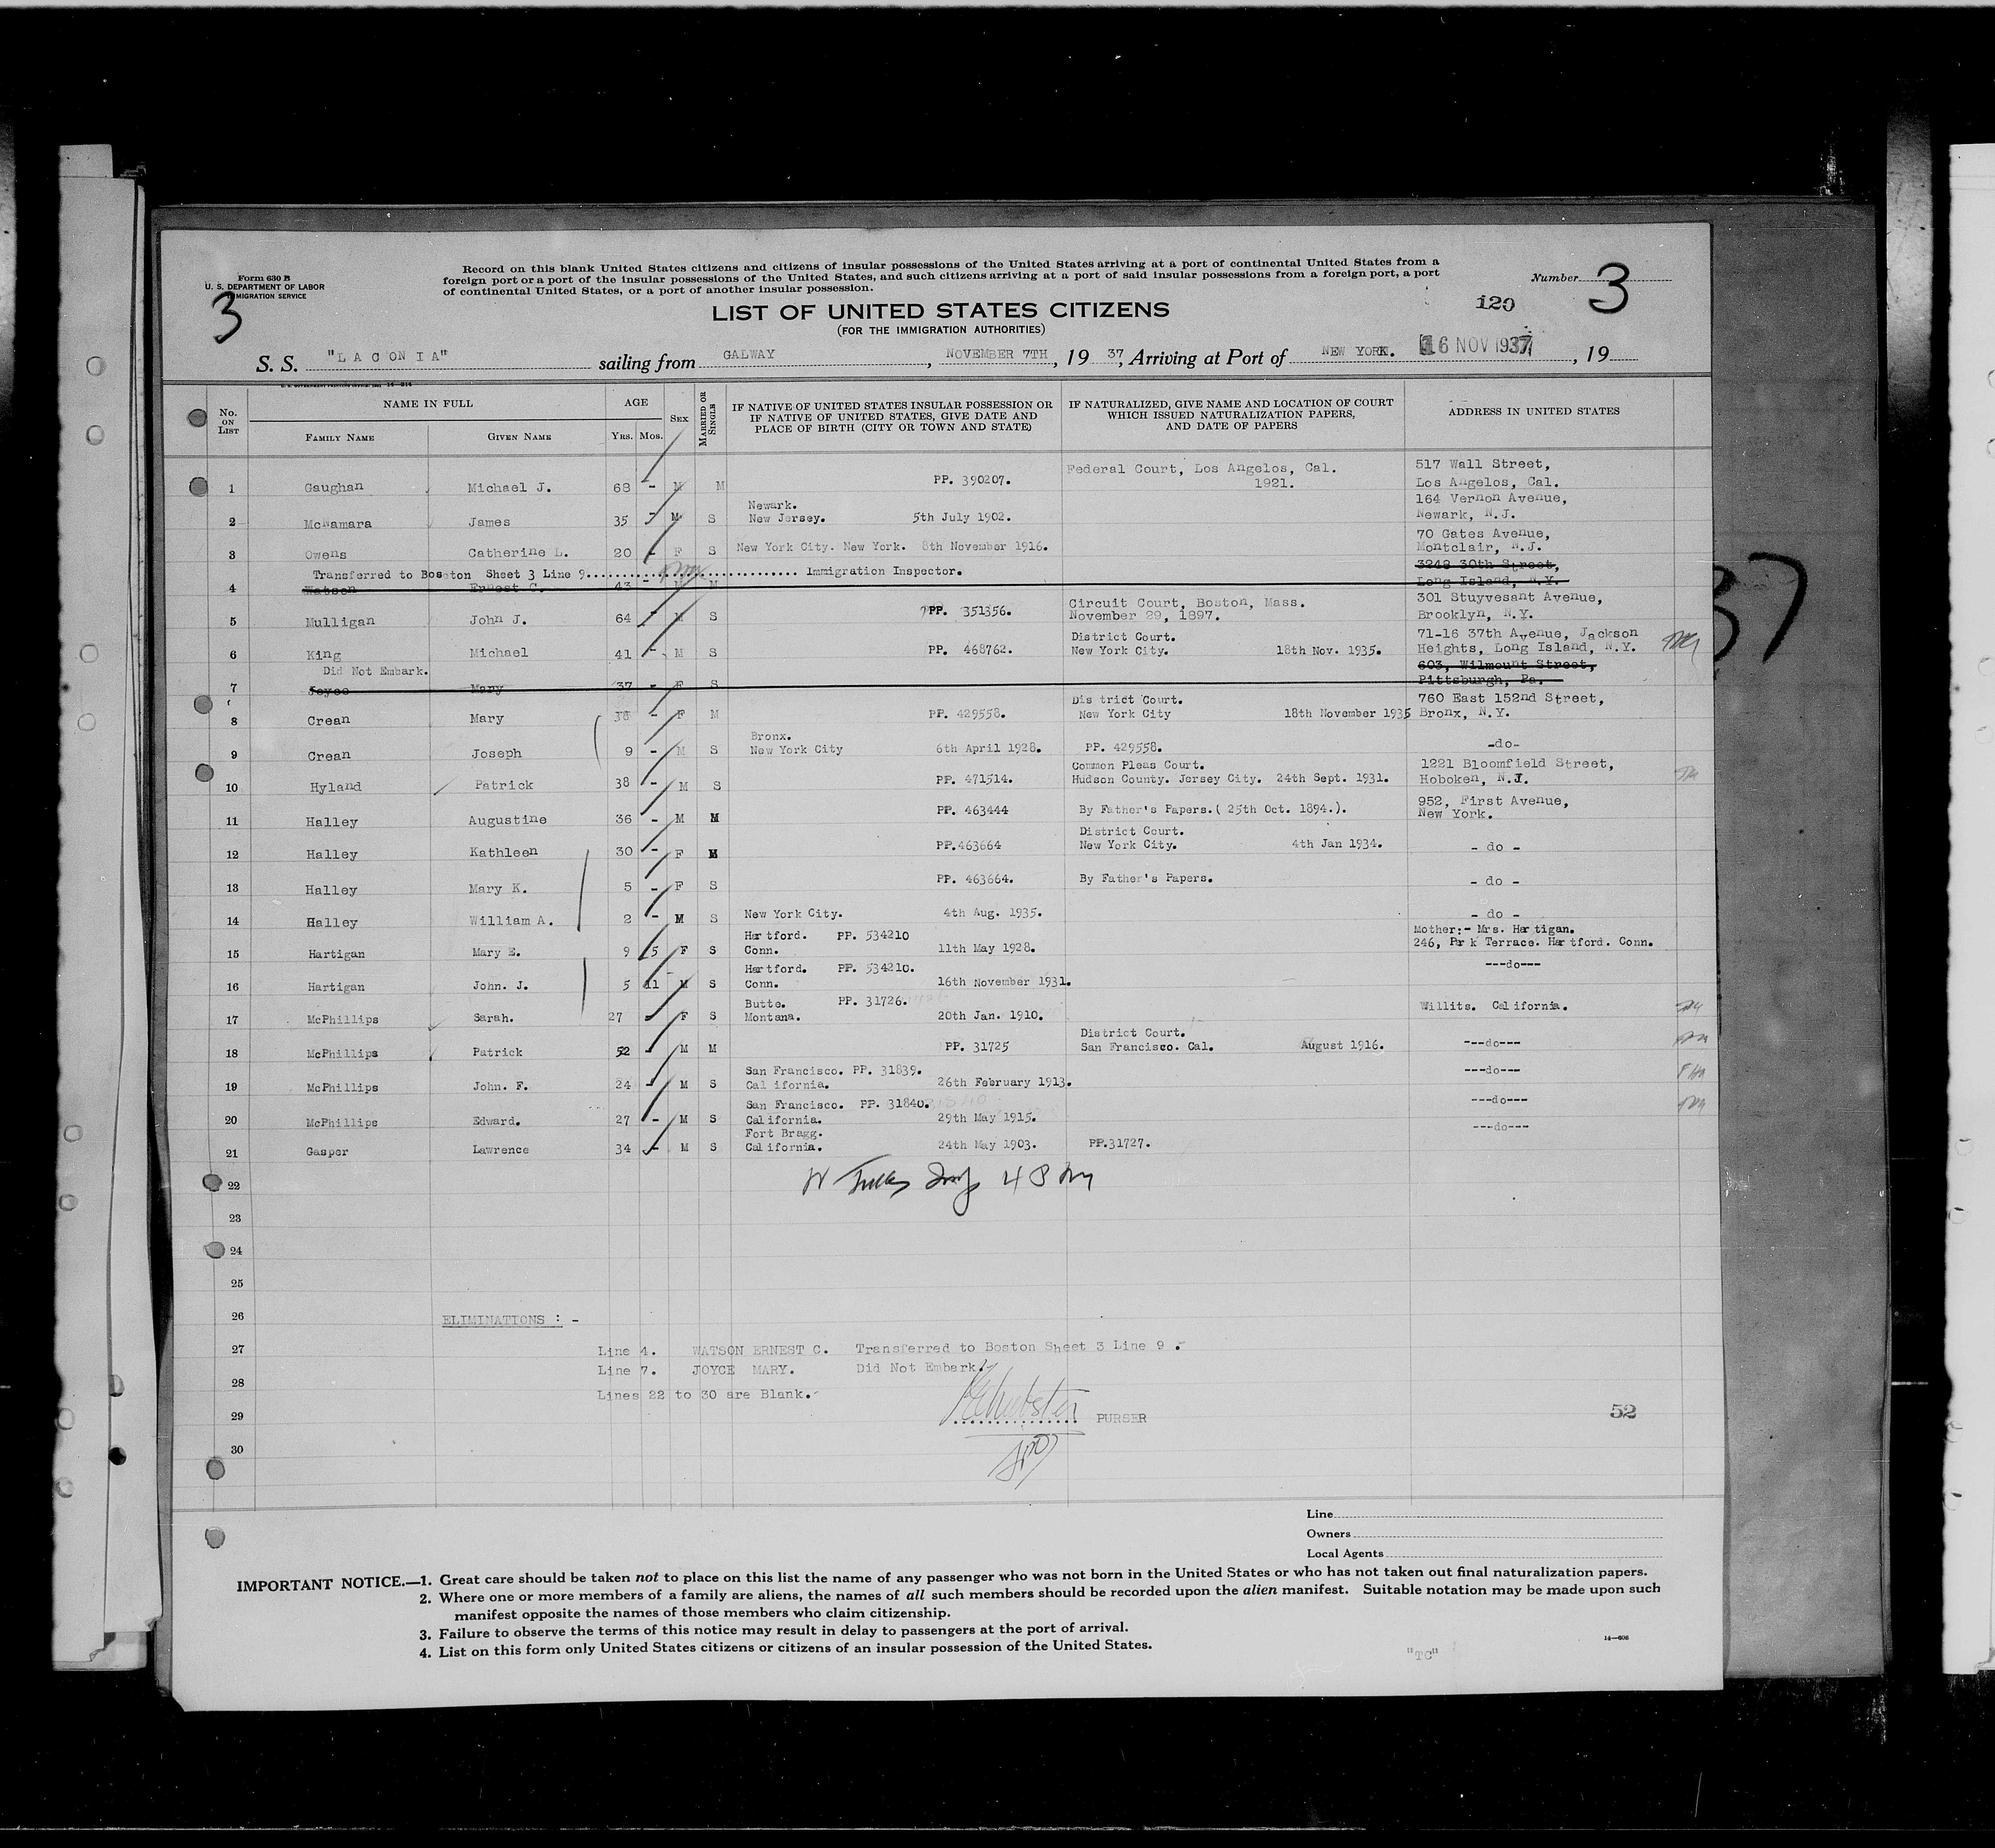 Form 630 B
U. S. DEPARTMENT OF LABOR
IMMIGRATION SERVICE
3
Record on this blank United States citizens and citizens of insular possessions of the United States arriving at a port of continental United States from a
foreign port or a port of the insular possessions of the United States, and such citizens arriving at a port of said insular possessions from a foreign port, a port
of continental United States, or a port of another insular possession.
Number 3
120
LIST OF UNITED STATES CITIZENS
(FOR THE IMMIGRATION AUTHORITIES)
S. S. "LACONIA" sailing from GALWAY, NOVEMBER 7TH, 1937, Arriving at Port of NEW YORK. 16 NOV 1937, 19
No. ON LIST NAME IN FULL AGE SEX MARRIED OR SINGLE IF NATIVE OF UNITED STATES INSULAR POSSESSION OR IF NATIVE OF UNITED STATES, GIVE DATE AND PLACE OF BIRTH (CITY OR TOWN AND STATE) IF NATURALIZED, GIVE NAME AND LOCATION OF COURT WHICH ISSUED NATURALIZATION PAPERS, AND DATE OF PAPERS ADDRESS IN UNITED STATES
FAMILY NAME GIVEN NAME YRS. MOS.
Federal Court, Los Angelos, Cal. 517 Wall Street,
1 Gaughan Michael J. 68 - M M PP. 390207. 1921. Los Angelos, Cal.
Newark. 164 Vernon Avenue,
2 McNamara James 35 - M S New Jersey. 5th July 1902. Newark, N.J.
70 Gates Avenue,
3 Owens Catherine L. 20 - F S New York City. New York. 8th November 1916. Montclair, N.J.
Transferred to Boston Sheet 3 Line 9 Immigration Inspector. 3248 30th Street,
4 Watson Ernest C. 43 - M M Long Island, N.Y.
Circuit Court, Boston, Mass. 301 Stuyvesant Avenue,
5 Mulligan John J. 64 - M S PP. 351356. November 29, 1897. Brooklyn, N.Y.
District Court. 71-16 37th Avenue, Jackson
6 King Michael 41 - M S PP. 468762. New York City. 18th Nov. 1935. Heights, Long Island, N.Y.
Did Not Embark. 603, Wilmount Street,
7 Joyce Mary 37 - F S Pittsburgh, Pa.
District Court. 760 East 152nd Street,
8 Crean Mary - F M PP. 429558. New York City 18th November 1935 Bronx, N.Y.
Bronx.
9 Crean Joseph 9 - M S New York City 6th April 1928. PP. 429558. -do-
Common Pleas Court. 1221 Bloomfield Street,
10 Hyland Patrick 38 - M S PP. 471514. Hudson County. Jersey City. 24th Sept. 1931. Hoboken, N.J.
952, First Avenue,
11 Halley Augustine 36 - M M PP. 463444 By Father's Papers.( 25th Oct. 1894.). New York.
District Court.
12 Halley Kathleen 30 - F M PP.463664 New York City. 4th Jan 1934. - do -
13 Halley Mary K. 5 - F S PP. 463664. By Father's Papers. - do -
14 Halley William A. 2 - M S New York City. 4th Aug. 1935. - do -
Hartford. PP. 534210 Mother:- Mrs. Hartigan.
15 Hartigan Mary E. 9 5 F S Conn. 11th May 1928. 246, Park Terrace. Hartford. Conn.
Hartford. PP. 534210. ---do---
16 Hartigan John. J. 5 11 M S Conn. 16th November 1931.
Butte. PP. 31726.
17 McPhillips Sarah. 27 - F S Montana. 20th Jan. 1910. Willits. California.
District Court.
18 McPhillips Patrick 52 - M M PP. 31725 San Francisco. Cal. August 1916. ---do---
San Francisco. PP. 31839.
19 McPhillips John. F. 24 - M S California. 26th February 1913. ---do---
San Francisco. PP. 31840.
20 McPhillips Edward. 27 - M S California. 29th May 1915. ---do---
Fort Bragg.
21 Gasper Lawrence 34 - M S California. 24th May 1903. PP.31727. ---do---
22
23
24
25
26
ELIMINATIONS : -
27 Line 4. WATSON ERNEST C. Transferred to Boston Sheet 3 Line 9 .
Line 7. JOYCE MARY. Did Not Embark.
28
Lines 22 to 30 are Blank.
29 PURSER 52
30
Line
Owners
Local Agents
IMPORTANT NOTICE.—1. Great care should be taken not to place on this list the name of any passenger who was not born in the United States or who has not taken out final naturalization papers.
2. Where one or more members of a family are aliens, the names of all such members should be recorded upon the alien manifest. Suitable notation may be made upon such
manifest opposite the names of those members who claim citizenship.
3. Failure to observe the terms of this notice may result in delay to passengers at the port of arrival.
4. List on this form only United States citizens or citizens of an insular possession of the United States.
14—608
"TC"
37